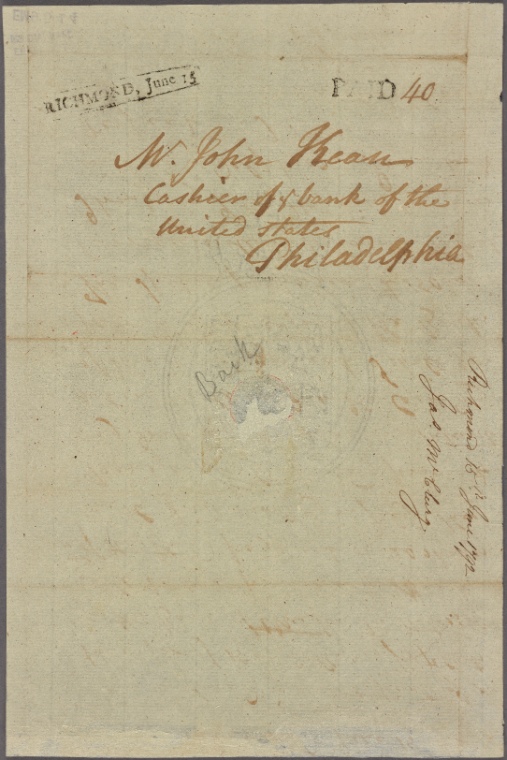 RICHMOND, June 15
PAID 40
Mr. John Kean
Cashier of ye bank of the
United States
Philadelphia
Back
Richmond 15 June 1792
Jas McClurg